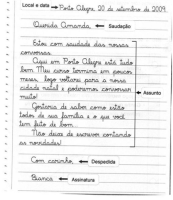 Local e data → Porto Alegre, 20 de setembro de 2009.
Querida Amanda, ← Saudação
Estou com saudade das nossas
conversas.
Aqui em Porto Alegre está tudo
bem. Meu curso termina em poucos
meses, logo voltarei para a nossa
cidade natal e poderemos conversar
muito!
Gostaria de saber como estão
todos de sua família e o que você
tem feito de bom.
Não deixe de escrever contando
as novidades!
← Assunto
Com carinho, ← Despedida
Bianca ← Assinatura